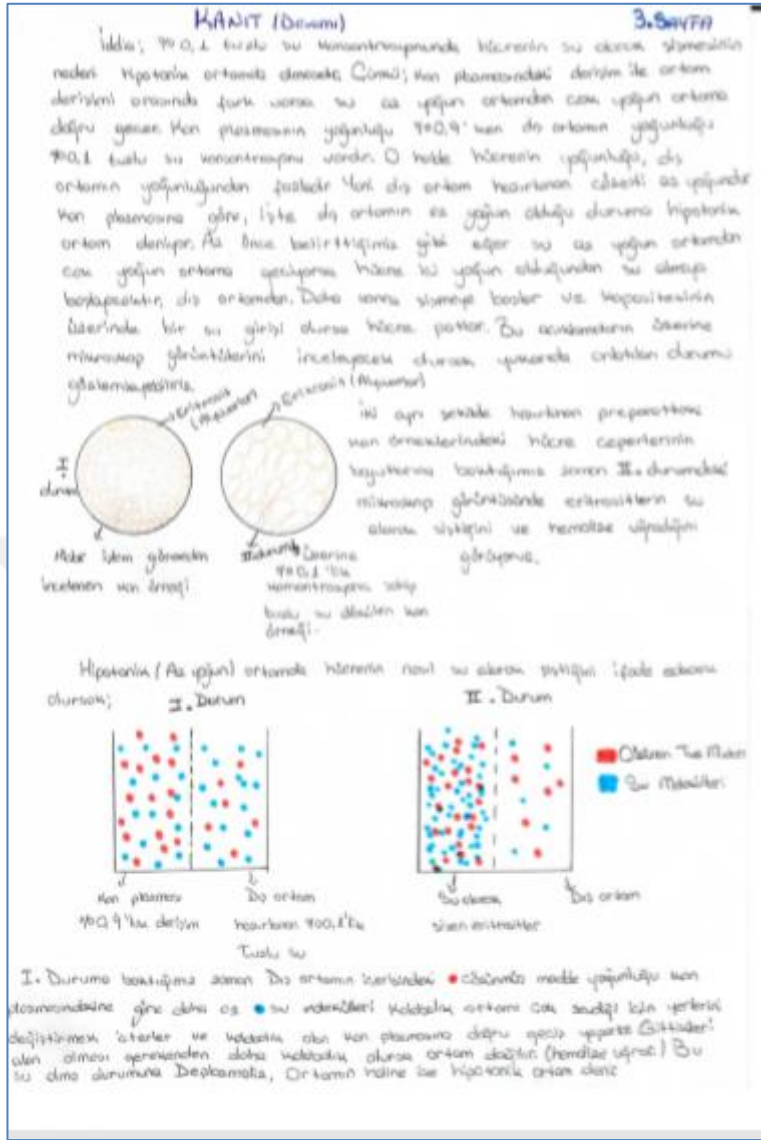 KANIT (Devamı)
3. SAYFA
İddia; %0,1 tuzlu su konsantrasyonunda hücrenin su alarak şişmesinin
nedeni hipotonik ortamda olmasıdır. Çünkü; kan plazmasındaki derişim ile ortam
derişimi arasında fark varsa su az yoğun ortamdan çok yoğun ortama
doğru geçer. Kan plazmasının yoğunluğu %0,9' iken dış ortamın yoğunluğu
%0,1 tuzlu su konsantrasyonu vardır. O halde hücrenin yoğunluğu, dış
ortamın yoğunluğundan fazladır. Yani dış ortam hazırlanan çözelti az yoğundur
kan plazmasına göre, İşte dış ortamın az yoğun olduğu duruma hipotonik
ortam deniyor. Az önce belirttiğimiz gibi eğer su az yoğun ortamdan
çok yoğun ortama geçiyorsa hücre içi yoğun olduğundan su almaya
başlayacaktır, dış ortamdan. Daha sonra şişmeye başlar ve kapasitesinin
üzerinde bir su girişi olursa hücre patlar. Bu açıklamaların üzerine
mikroskop görüntülerini inceleyecek olursak yukarıda anlatılan durumu
gözlemleyebiliriz.
Eritrosit (Alyuvar)
Eritrosit (Alyuvar)
I.
durum
II.durum
Hiçbir işlem görmeden
incelenen kan örneği
Üzerine
%0,1'lik
konsantrasyona sahip
tuzlu su dökülen kan
örneği.
İki ayrı şekilde hazırlanan preparattaki
kan örneklerindeki hücre çeperlerinin
boyutlarına baktığımız zaman II. durumdaki
mikroskop görüntüsünde eritrositlerin su
alarak şiştiğini ve hemolize uğradığını
görüyoruz.
Hipotonik (Az yoğun) ortamda hücrenin nasıl su alarak şiştiğini ifade edecek
olursak;
I. Durum
II. Durum
Tuz
Su Molekülleri
Kan plazması
%0,9'luk derişim
Dış ortam
hazırlanan %0,1'lik
Tuzlu su
Su alarak
şişen eritrositler
Dış ortam
I. Duruma baktığımız zaman Dış ortamın içerisindeki çözünmüş madde yoğunluğu kan
plazmasındakine göre daha az su molekülleri kalabalık ortamı çok sevdiği için yerlerini
değiştirmek isterler ve kalabalık olan kan plazmasına doğru geçiş yaparlar. Gittikleri
alan olması gerekenden daha kalabalık olursa ortam dağılır. (hemolize uğrar.) Bu
su alma durumuna Deplazmoliz, Ortamın haline ise hipotonik ortam denir.